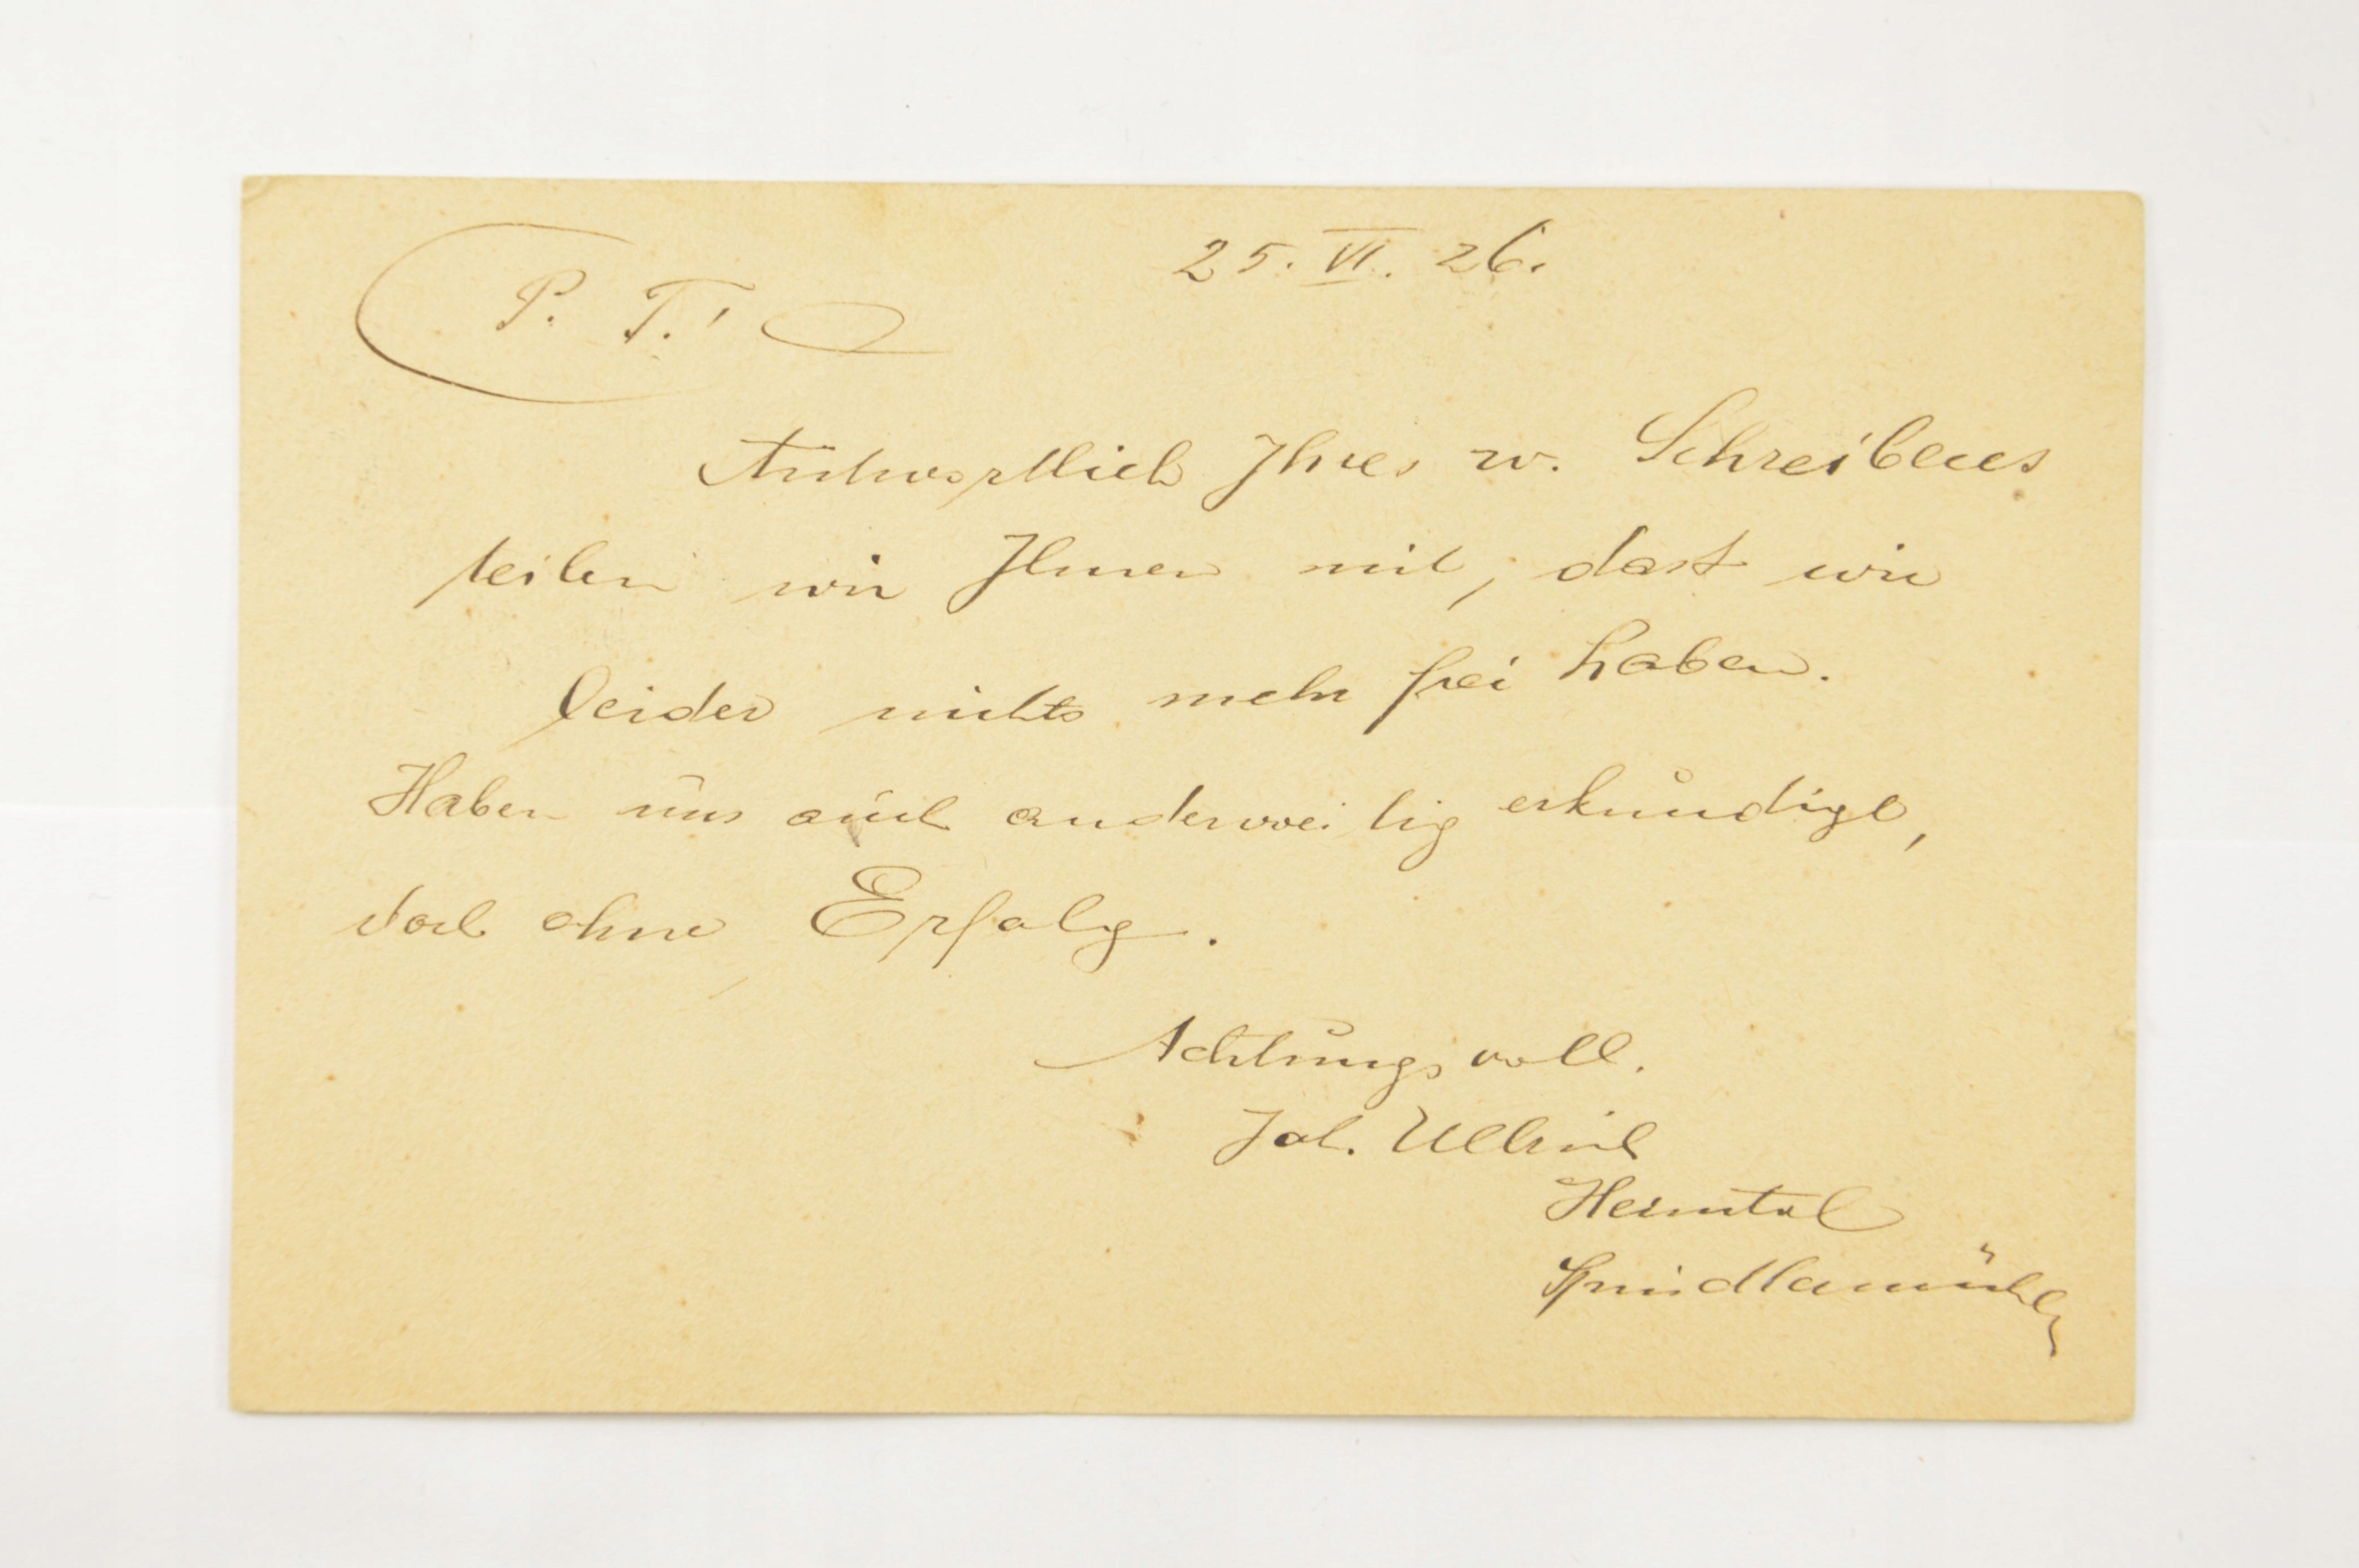 25. VI. 26.
P. T.!
Antwortlich Ihres w. Schreibens
teilen wir Ihnen mit, dast wir
leider nichts mehr frei haben.
Haben uns auch anderweitig erkundigt,
doch ohne Erfolg.
Achtungsvoll.
Joh. Ullrich
Heimtal
Spindlamühle